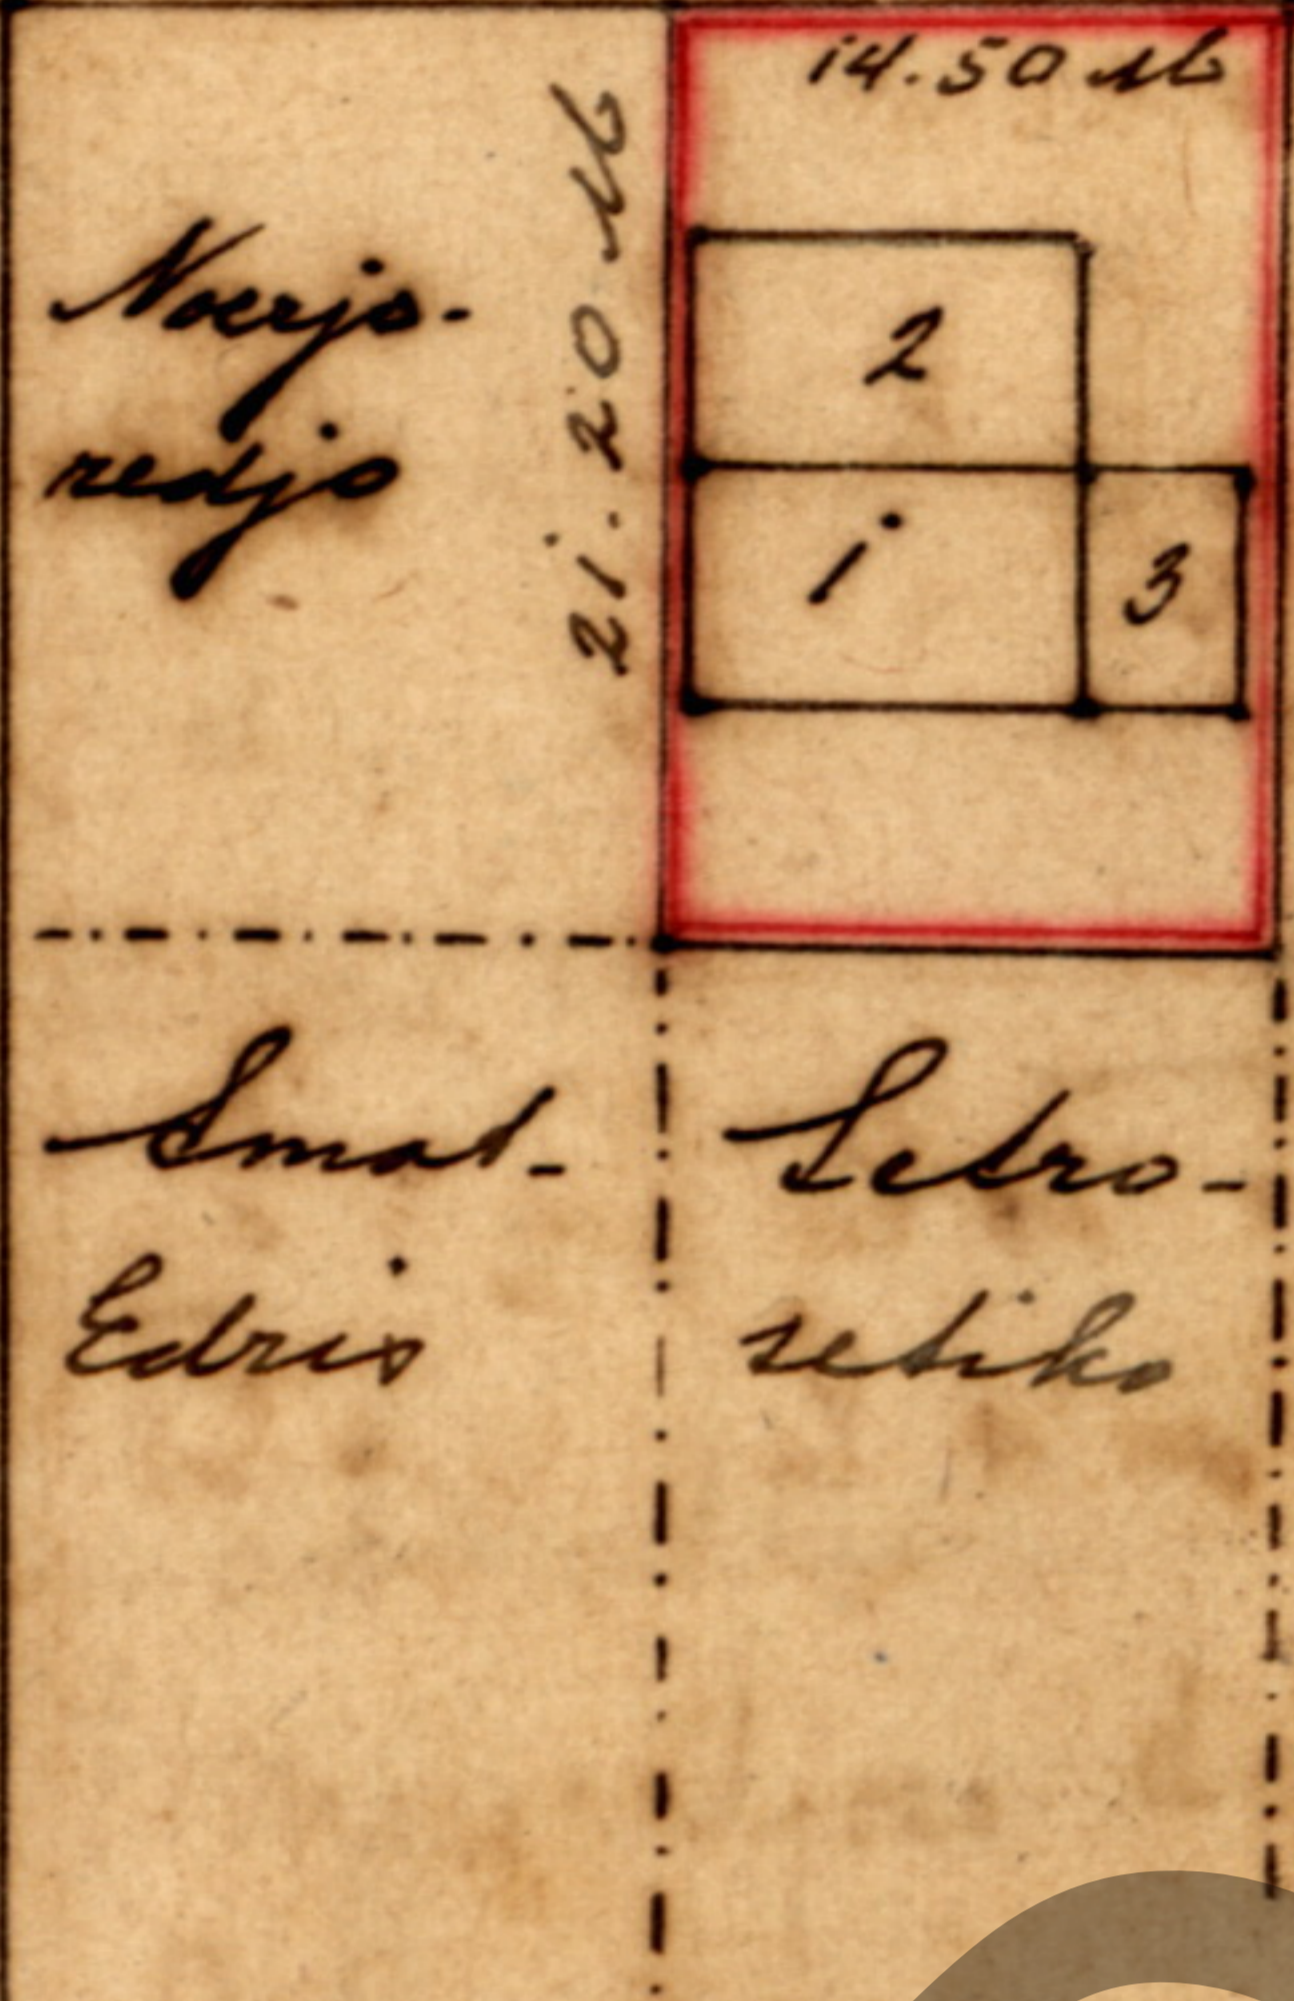 14.50 M
21.20 M
Noerjo-
redjo
2
1
3
Smat-
Edris
Setro-
setiko